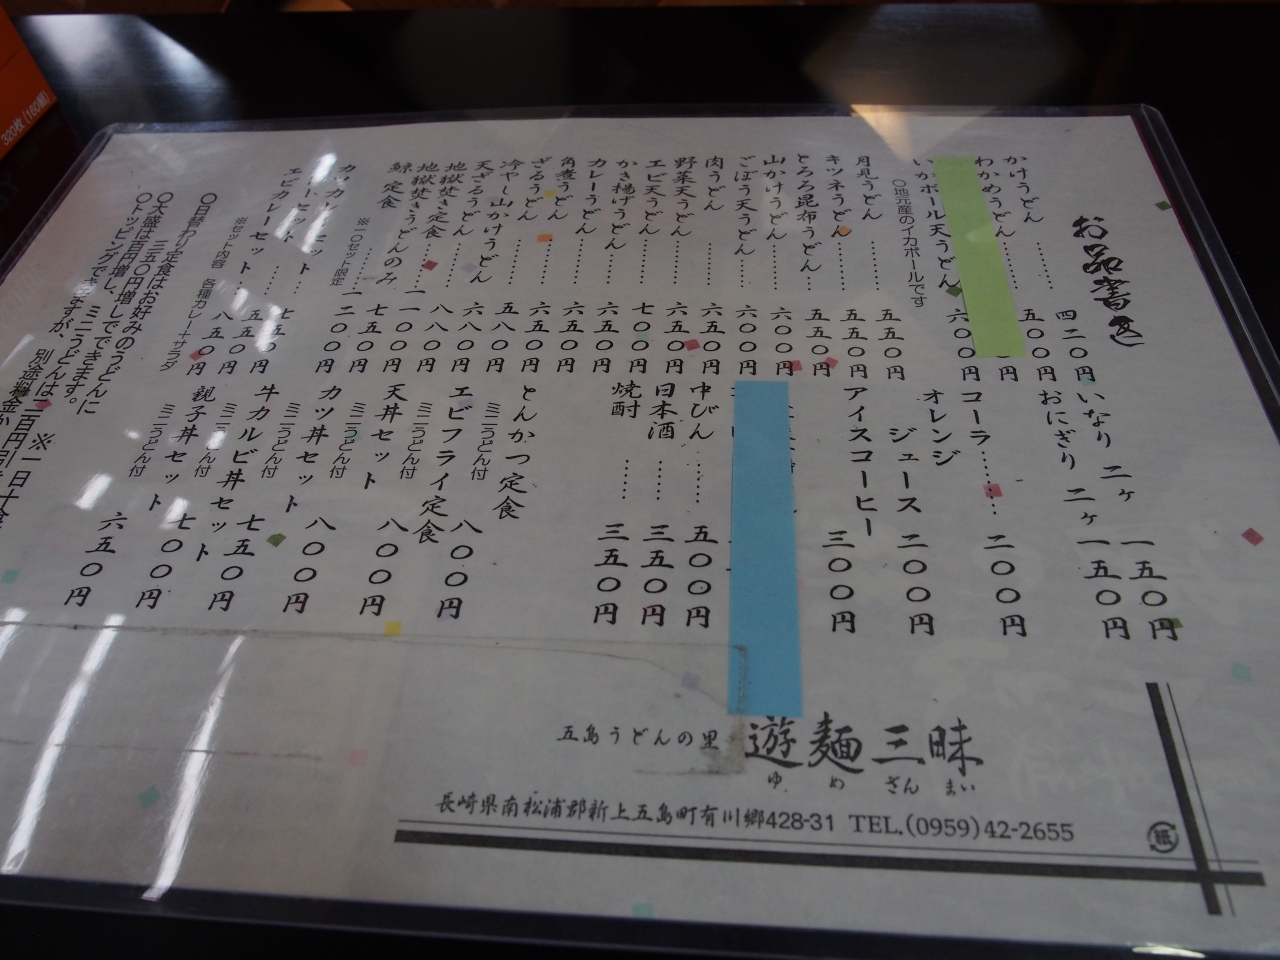 お品書き
かけうどん ………… 四二〇円
わかめうどん ……… 五〇〇円
円
いかボール天うどん 六〇〇円
〇地元産のイカボールです
月見うどん ………… 五五〇円
キツネうどん ……… 五五〇円
とろろ昆布うどん … 五五〇円
山かけうどん ……… 六〇〇円
ごぼう天うどん …… 六〇〇円
肉うどん ………… 六五〇円
野菜天うどん ……… 六五〇円
エビ天うどん ……… 七〇〇円
かき揚げうどん …… 六五〇円
カレーうどん ……… 六五〇円
角煮うどん ………… 六五〇円
ざるうどん ………… 五八〇円
冷やし山かけうどん 六八〇円
天ざるうどん ……… 八八〇円
地獄焚き定食 …… 一一〇〇円
地獄焚きうどんのみ 七五〇円
鯨 定食 ………… 一二〇〇円
※一〇セット限定
セット …… 七五〇円
エビカレーセット … 八五〇円
※セット内容 各種カレーサラダ
〇日替わり定食はお好みのうどんに
三五〇円増しでできます。
〇大盛は百円増し、ミニうどんは二百円引
〇トッピングできますが、別途料金が
※一日十食
いなり 二ヶ 一五〇円
おにぎり 二ヶ 一五〇円
コーラ …… 二〇〇円
オレンジ
ジュース 二〇〇円
アイスコーヒー 三〇〇円
中びん …… 五〇〇円
日本酒 …… 三五〇円
焼酎 …… 三五〇円
とんかつ定食
ミニうどん付 八〇〇円
エビフライ定食
ミニうどん付 八〇〇円
天丼セット
ミニうどん付 八〇〇円
カツ丼セット
ミニうどん付 七五〇円
牛カルビ丼セット
ミニうどん付 七〇〇円
親子丼セット
ミニうどん付 六五〇円
五島うどんの里 遊麺三昧
ゆ め ざん まい
長崎県南松浦郡新上五島町有川郷428-31 TEL.(0959)42-2655
紙
320枚(160組)